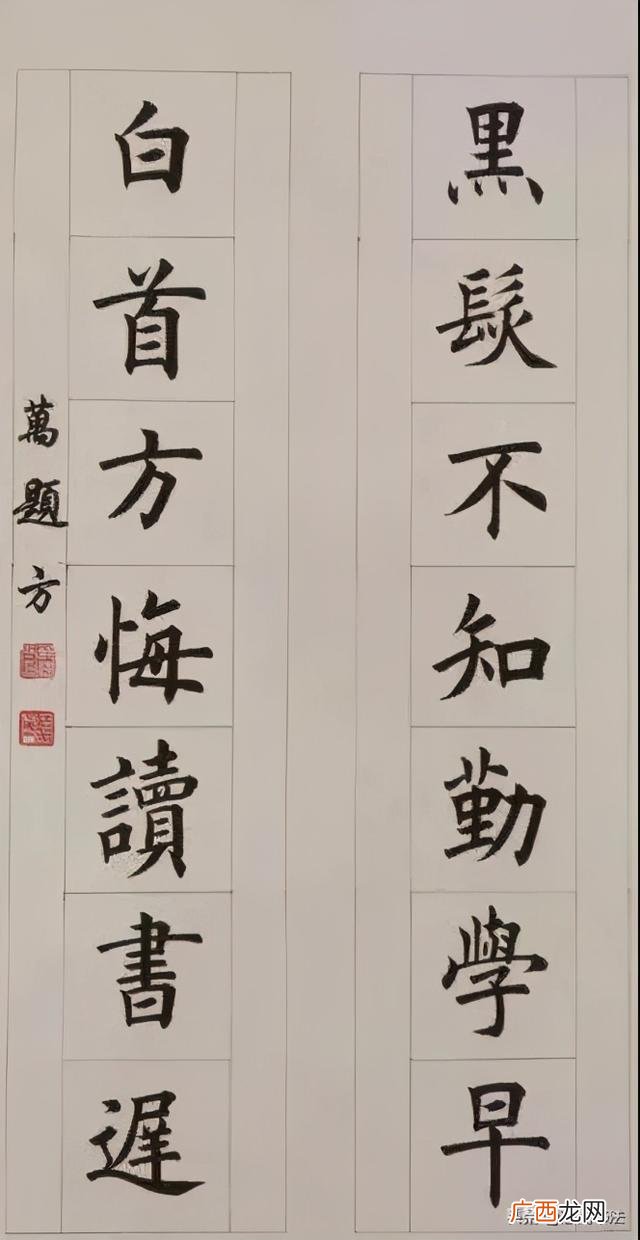 黑髮不知勤學早
白首方悔讀書遲
萬題方
广西龙网